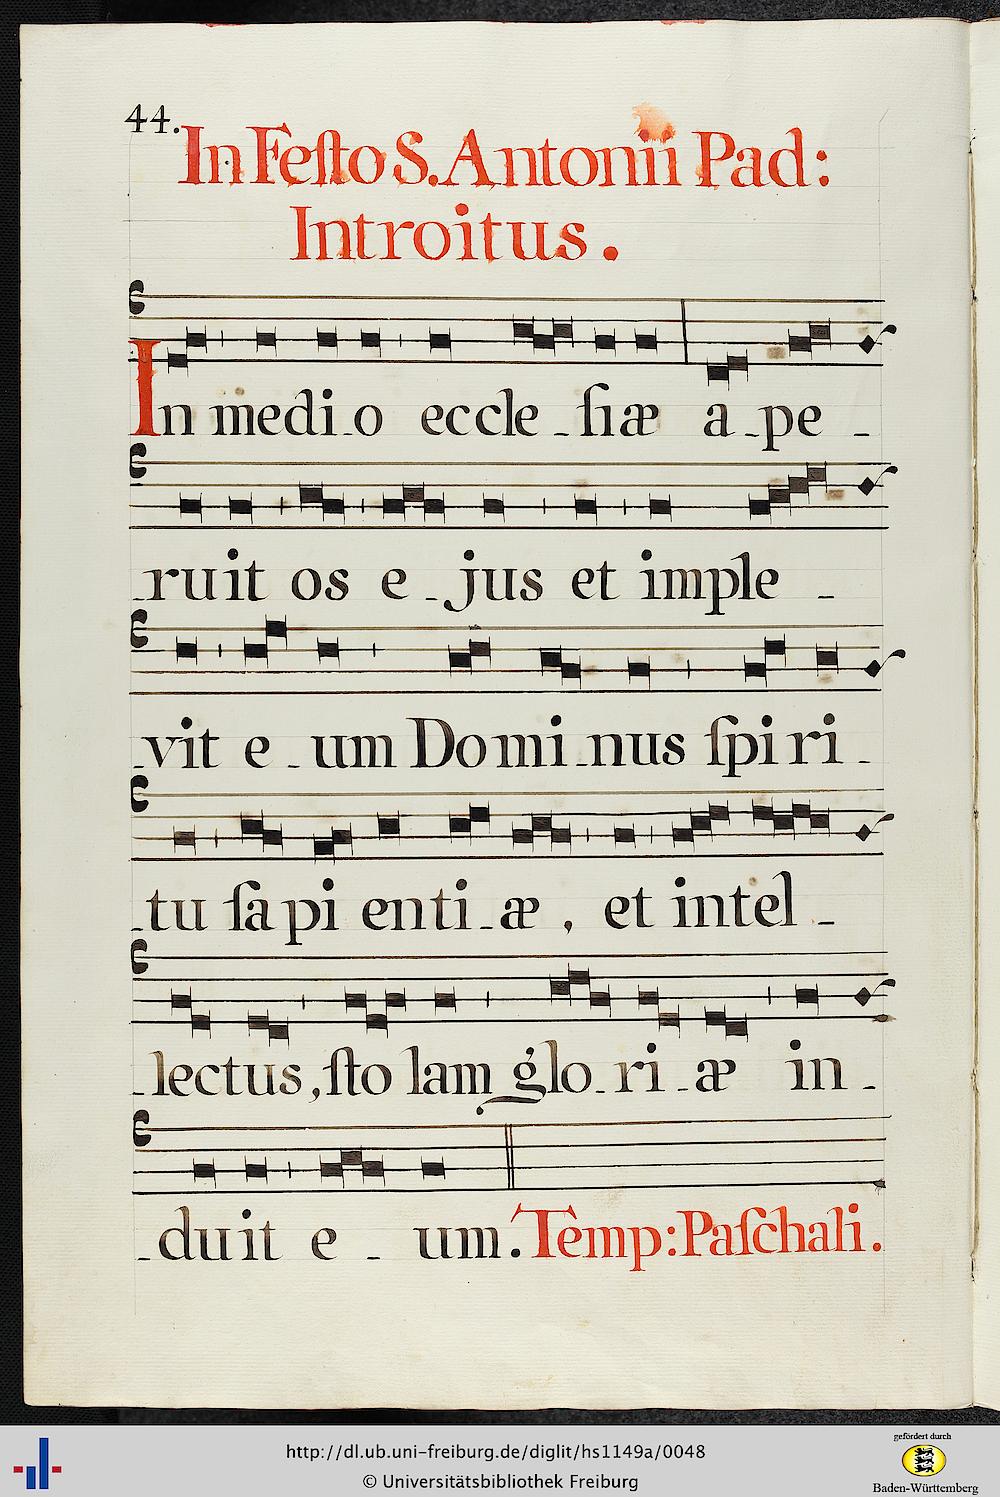 44.
In Feſto S. Antonii Pad:
Introitus.
In medi_o eccle_ſiæ a_pe_
_ruit os e_jus et imple_
_vit e_um Domi_nus ſpiri_
_tu ſapi enti_æ, et intel_
_lectus, ſto lam glo_ri_æ in_
_duit e_um. Temp: Paſchali.
http://dl.ub.uni-freiburg.de/diglit/hs1149a/0048
© Universitätsbibliothek Freiburg
gefördert durch
Baden-Württemberg